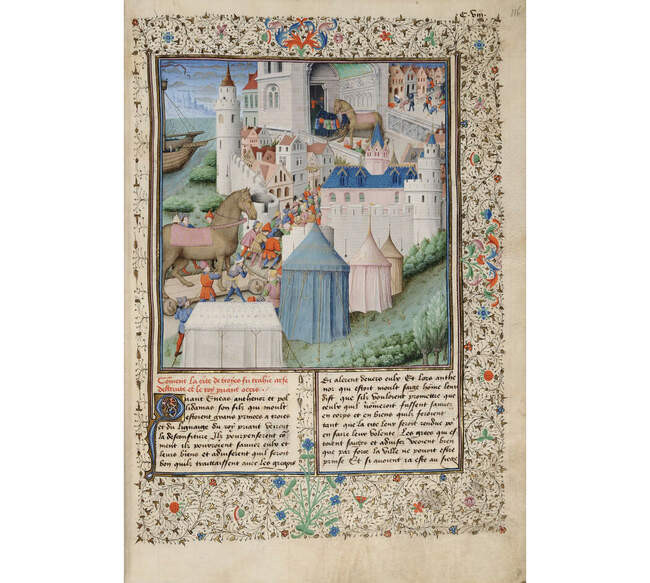 C. viii.
116
Coment la cite de troyes fu trahie arse
destruite et le roy priant occis
Quant Eneas anthenor et pol
lidamas son filz qui moult
estoient grans princes a troies
et du lignaige du roy priant veirent
la desconfiture Ilz pourpenserent com
ment ilz pourroient sauuer eulx et
leurs biens et aduiserent quil seroit
bon quilz traittaissent auec les gregois
Et alerent deuers eulx Et lors anthe
nor qui estoit moult saige home leur
dist que silz vouloient promettre que
ceulx quil nomeroit fussent sauuez
en corps et en biens quilz feroient
tant que la cite leur seroit rendue
en faire leur voulente Les grecs qui es
toient saiges et aduisez veoient bien
que par force la ville ne pouoit estre
prinse Et si auoient ia este au siege